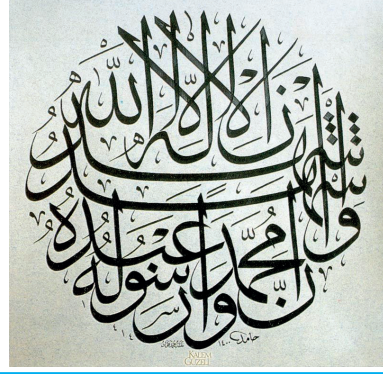 اشهد ان لا اله الا الله
واشهد ان محمدا عبده ورسوله
حامد ١٤٠٠
KALEM GÜZELİ